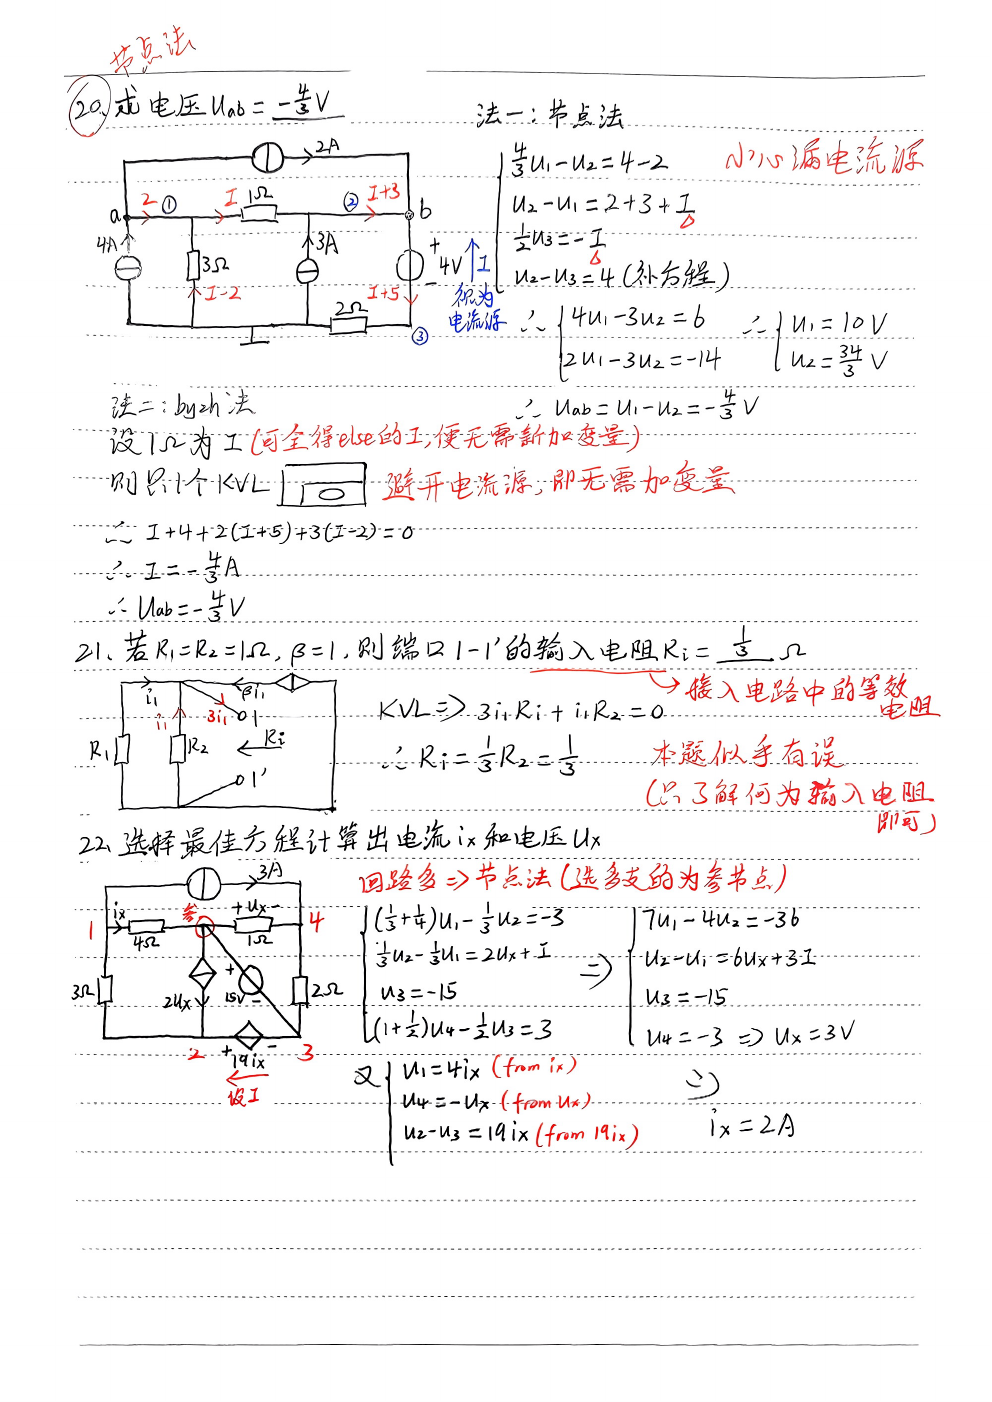 节点法
20. 求电压Uab = -4/3 V
法一：节点法
小心漏电流源
2A
4/3 U1 - U2 = 4 - 2
U2 - U1 = 2 + 3 + I
1/2 U3 = -I
U2 - U3 = 4 (补方程)
a 2 ① I 1Ω ② I+3 b
4A 3Ω 3A + 4V - I
I-2 2Ω I+5 ③
视为
电流源
∴ 4U1 - 3U2 = 6
2U1 - 3U2 = -14
∴ U1 = 10V
U2 = 34/3 V
∴ Uab = U1 - U2 = -4/3 V
法二：byzh法
设1Ω为I (可全得else的I,便无需新加变量)
则只1个KVL 避开电流源,即无需加变量
∴ I + 4 + 2(I+5) + 3(I-2) = 0
∴ I = -4/3 A
∴ Uab = -4/3 V
21. 若R1=R2=1Ω, β=1, 则端口1-1'的输入电阻Ri = 1/3 Ω
接入电路中的等效
电阻
i1 βi1
i1 3i1 1
R1 R2 Ri
1'
KVL ⇒ 3i1Ri + i1R2 = 0
∴ Ri = 1/3 R2 = 1/3
本题似乎有误
(只了解何为输入电阻
即可)
22. 选择最佳方程计算出电流ix和电压Ux
回路多⇒节点法(选多支的为参节点)
3A
1 ix 4Ω 参 + Ux - 1Ω 4
3Ω 2Ux + 15V - 2Ω
2 + 19ix - 3
设I
(1/3+1/4)U1 - 1/3 U2 = -3
1/3 U2 - 1/3 U1 = 2Ux + I
U3 = -15
(1+1/2)U4 - 1/2 U3 = 3
⇒
7U1 - 4U2 = -36
U2 - U1 = 6Ux + 3I
U3 = -15
U4 = -3 ⇒ Ux = 3V
又 U1 = 4ix (from ix)
U4 = -Ux (from Ux)
U2 - U3 = 19ix (from 19ix)
⇒
ix = 2A